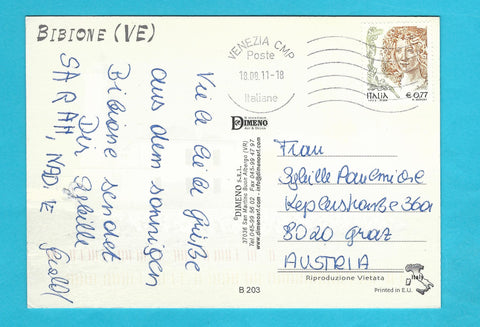 BIBIONE (VE)
Viele liebe Grüße
aus dem sonnigen
Bibione sendet
Dir Sybille
SARAH, NADJE
VENEZIA CMP
Poste
18.09.11-18
Italiane
ITALIA
€ 0,77
DIMENO
DIMENO s.a.s.
37036 San Martino Buon Albergo (VR)
Tel 045-99 56 02 Fax 045-99 47 97
www.dimenosrl.com
Frau
Sybille
Keplerstraße 36a
8020 Graz
AUSTRIA
Riproduzione Vietata
italy
B 203
Printed in E.U.